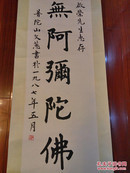 先生惠存
無阿彌陀佛
普陀山文書於一九八七年五月